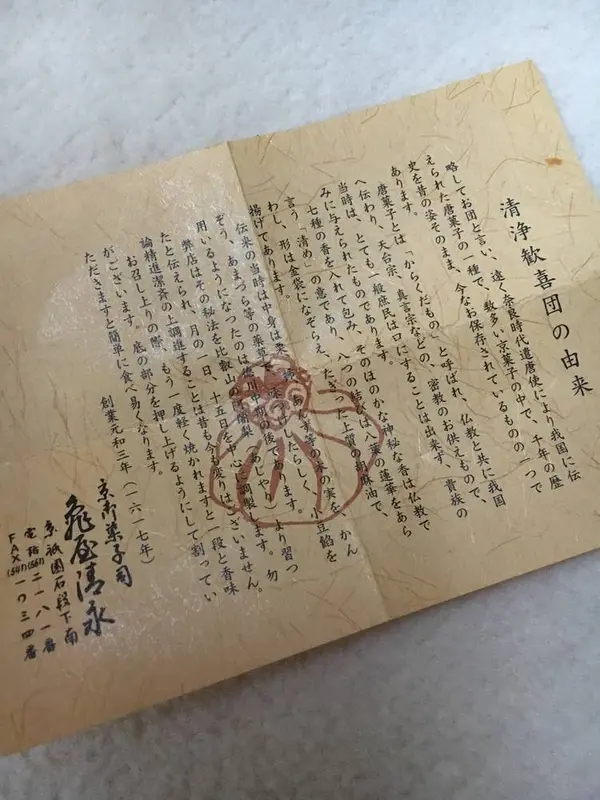 清浄歓喜団の由来
略してお団と言い、遠く奈良時代遣唐使により我国に伝
えられた唐菓子の一種で、数多い京菓子の中で、千年の歴
史を昔の姿そのまま、今なお保存されているものの一つで
あります。
唐菓子とは、「からくだもの」と呼ばれ、仏教と共に我国
へ伝わり、天台宗、真言宗などの、密教のお供えもので、
当時は、とても一般庶民は口にすることは出来ず、貴族の
みに与えられたものであります。そのほのかな神秘な香は仏教で
言う「清め」の意であり、
七種の香を入れて包み、八つの結びは八葉の蓮華をあら
わし、形は金袋になぞらえ、たぎった上質の胡麻油で、
揚げてあります。
伝来の当時は中身は栗、柿、あんず等の木の実を、かん
ぞう、あまづら等の薬草で味つけしたらしく、小豆餡を
用いるようになったのは徳川中期の後であります。
弊店はその秘法を比叡山の阿闍梨（あじゃり）より習っ
たと伝えられ、月の一日、十五日を中心に調製します。勿
論精進潔斉の上調進することは昔も今も変りはございません。
お召し上りの際、もう一度軽く焼かれますと一段と香味
がございます。底の部分を押し上げるようにして割ってい
ただきますと簡単に食べ易くなります。
創業元和三年（一六一七年）
京都菓子司
亀屋清永
京祇園石段下南
電話(561)二一八一番
FAX(541)一〇三四番